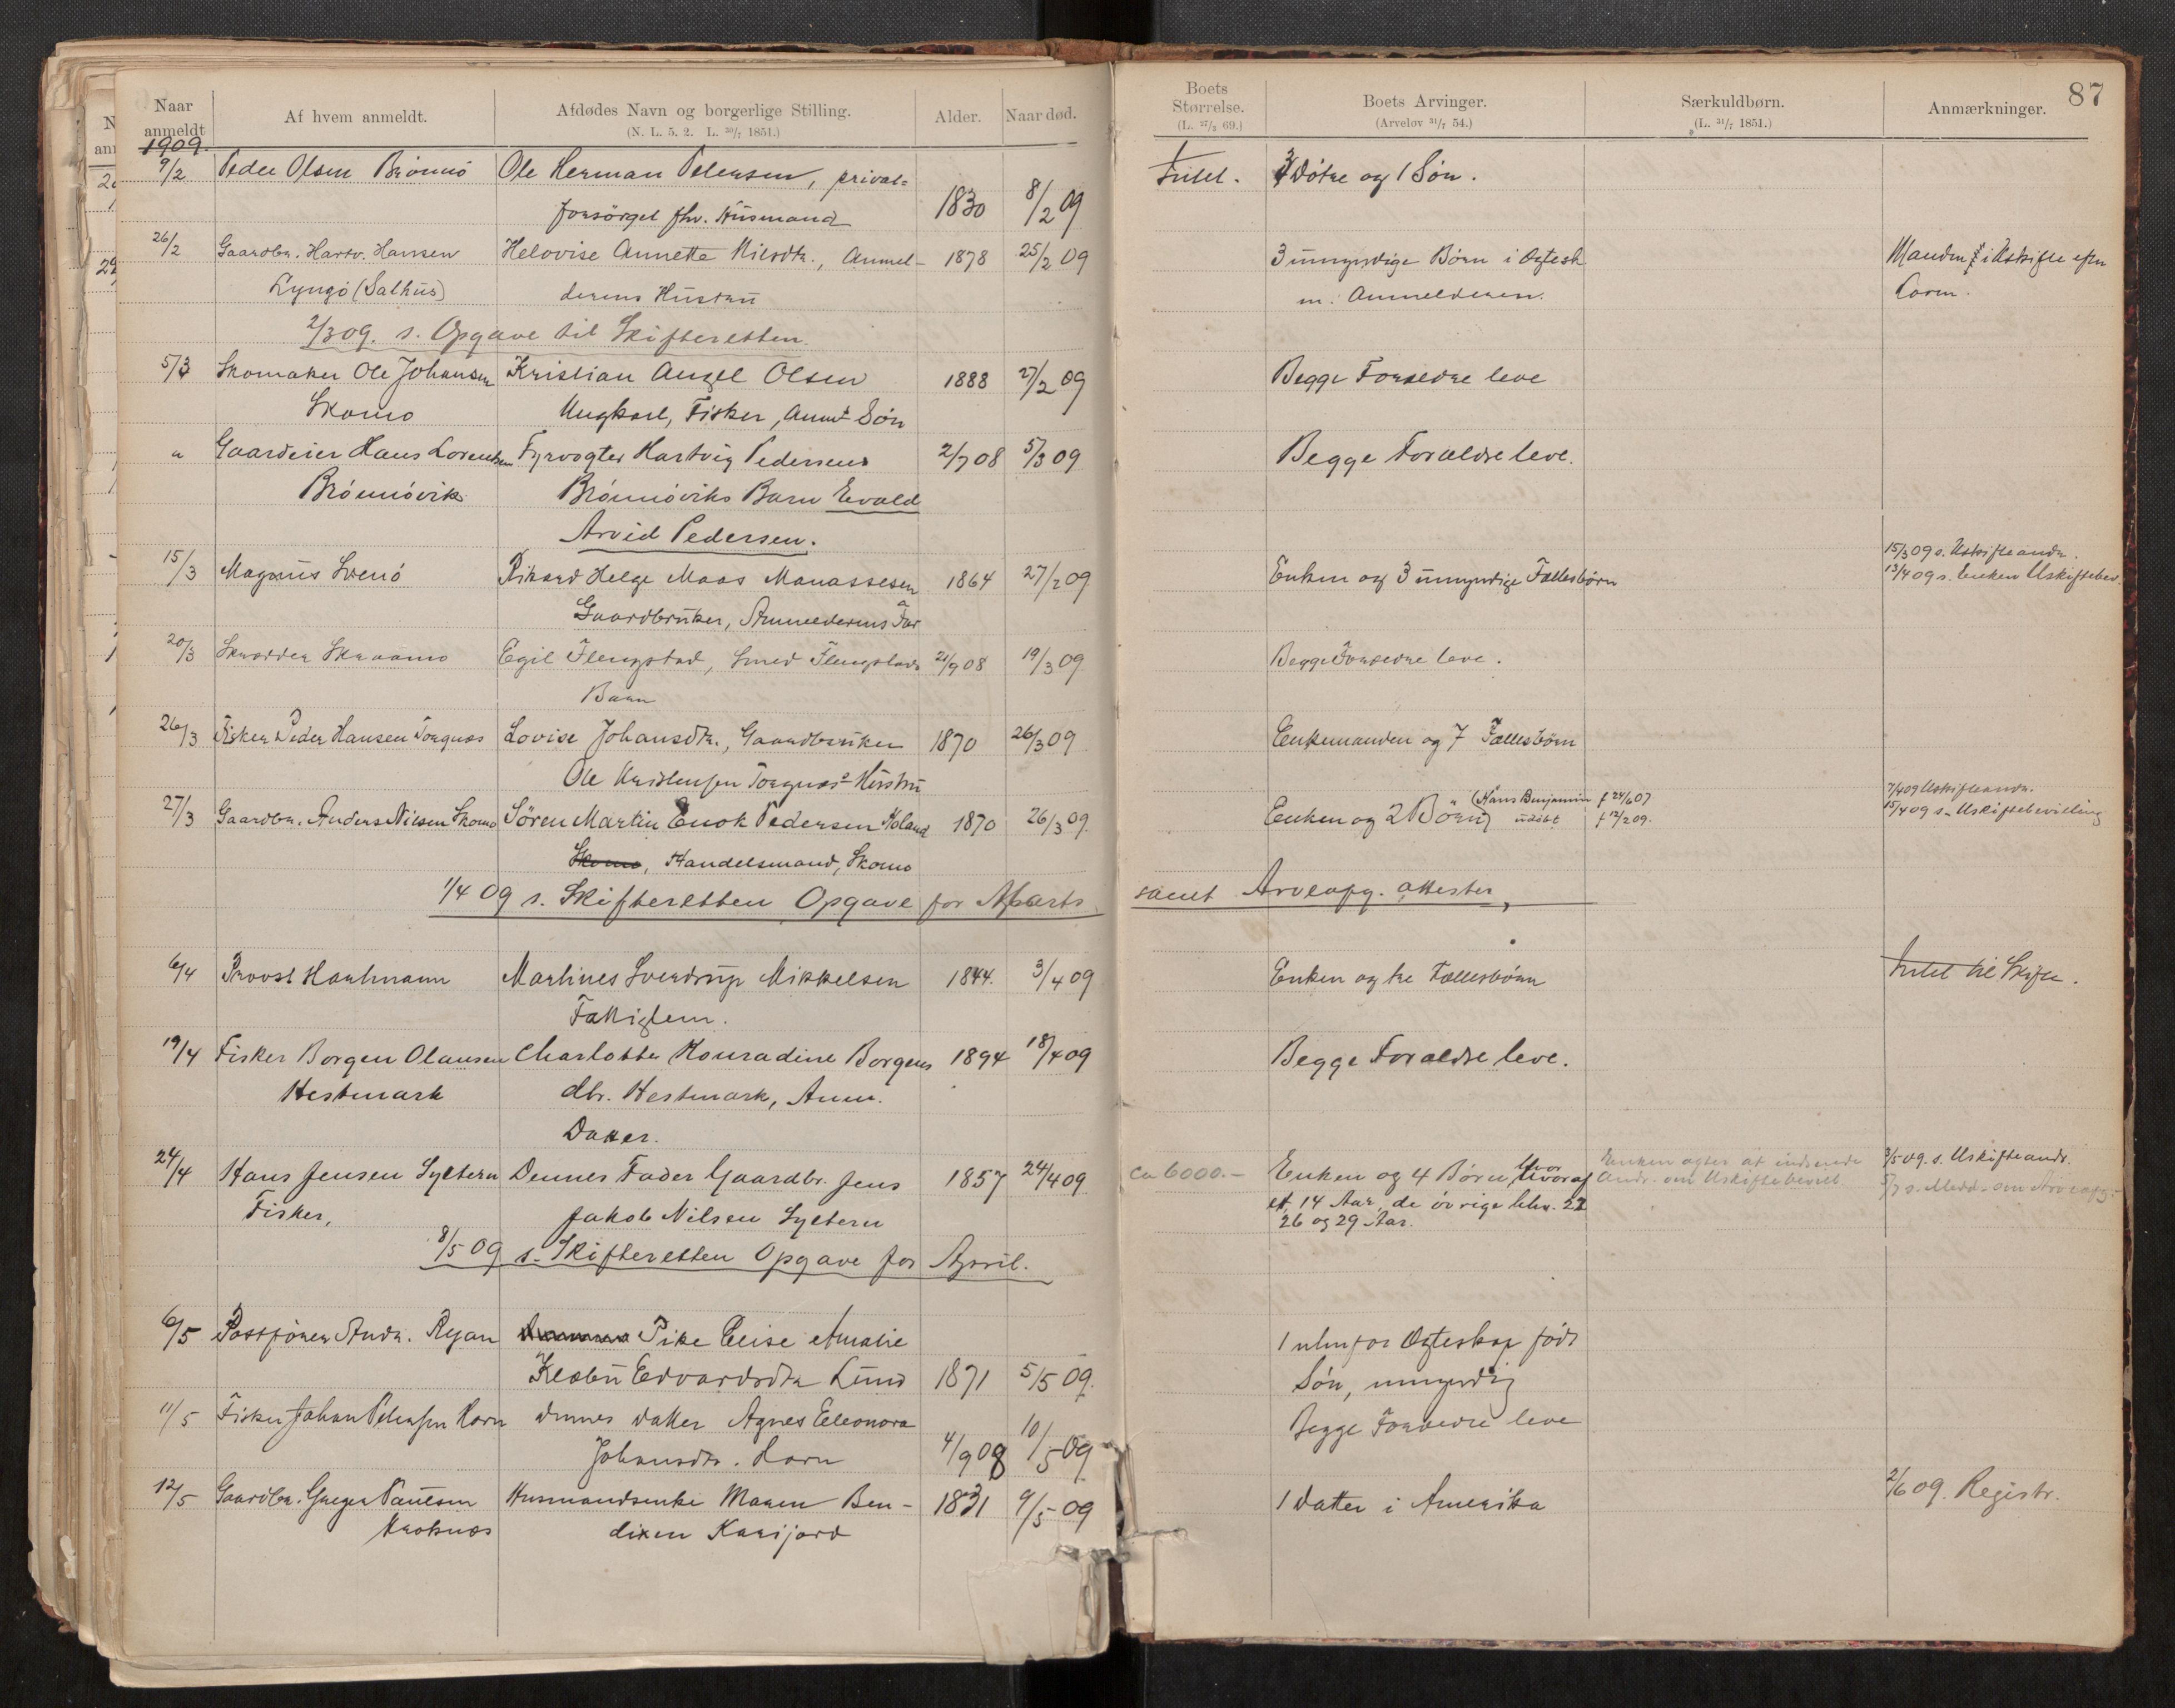 Naar anmeldt
Af hvem anmeldt.
Afdødes Navn og borgerlige Stilling.
(N. L. 5. 2. L. 30/7 1851.)
Alder.
Naar død.
Boets Størrelse.
(L. 27/3 69.)
Boets Arvinger.
(Arvelov 31/7 54.)
Særkuldbørn.
(L. 31/7 1851.)
Anmærkninger.
87
1909.
9/2 Peder Olsen Brønnø Ole Herman Petersen, privat= Intet. 3 Døtre og 1 Søn.
forsørget fhv. Husmand 1830 8/2 09
26/2 Gaardbr. Hartv. Hansen Helovise Annette Nilsdtr., Anmel- 1878 25/2 09 3 umyndige Børn i Ægtesk Manden i Uskifte efter
Lyngø (Salhus) derens Hustru m. Anmelderen. Loven.
2/3 09. s. Opgave til Skifteretten.
5/3 Skomaker Ole Johansen Kristian Angel Olsen 1888 27/2 09 Begge Forældre leve
Skomo Ungkarl, Fisker, Anmts Søn
" Gaardeier Hans Lorentsen Fyrvogter Hartvig Pedersens 2/7 08 5/3 09 Begge Forældre leve.
Brønnøvik Brønnøviks Barn Evald
Arvid Pedersen.
15/3 09 s. Uskifteandr.
15/3 Magnus Svenø Rikard Helge Maas Manassesen 1864 27/2 09 Enken og 3 umyndige Fællesbørn 13/4 09 s. Enken Uskiftebev.
Gaardbruker, Anmelderens Far
20/3 Skrædder Skraamo Egil Flengstad, Smed Flengstads 21/9 08 19/3 09. Begge Forældre leve.
Barn
26/3 Fisker Peder Hansen Torgnæs Lovise Johansdtr., Gaardbruker 1870 26/3 09 Enkemanden og 7 Fællesbørn
Ole Kristensen Torgnæs's Hustru
27/3 Gaardbr. Anders Nilsen Skomo Søren Martin Enok Pedersen Holand 1870 26/3 09. Enken og 2 Børn (Hans Benjamin f 24/6 07 7/4 09 Uskifteandr.
udøbt f 12/2 09. 15/4 09 s. Uskiftebevilling
Skomo, Handelsmand, Skomo
1/4 09 s. Skifteretten Opgave for Marts samt Arveopg. attester,
6/4 Provst Hartmann Martines Sverdrup Mikkelsen 1844. 3/4 09 Enken og tre Fællesbørn Intet til Skifte.
Fattiglem.
19/4 Fisker Borgen Olausen Charlotte Konradine Borgens 1894 18/4 09 Begge Forældre leve.
Hestmark dtr. Hestmark, Anm.
Datter.
24/4 Hans Jensen Syltern Dennes Fader Gaardbr. Jens 1857 24/4 09 ca 6000.- Enken og 4 Børn, hvoraf Enken agter at indsende 3/5 09. s. Uskifteandr.
Fisker, Jakob Nilsen Syltern et 14 Aar, de øvrige hhv. 22 Andr. om Uskiftebevill 5/7 s. Medd. om Arveopg.
26 og 29 Aar.
8/5 09 s. Skifteretten Opgave for April.
6/5 Postfører Andr. Ryan Pike Elise Amalie 1 utenfor Ægteskap født
Klæbu Edvardsdtr Lund 1871 5/5 09. Søn, umyndig
11/5 Fisker Johan Petersen Horn Dennes datter Agnes Eleonora Begge Forældre leve
Johansdtr. Horn 4/9 08 10/5 09
12/5 Gaardbr. Paulsen Husmandsenke Maren Ben- 1831 9/5 09 1 Datter i Amerika 2/6 09. Registr.
Kroknæs dixen Karijord